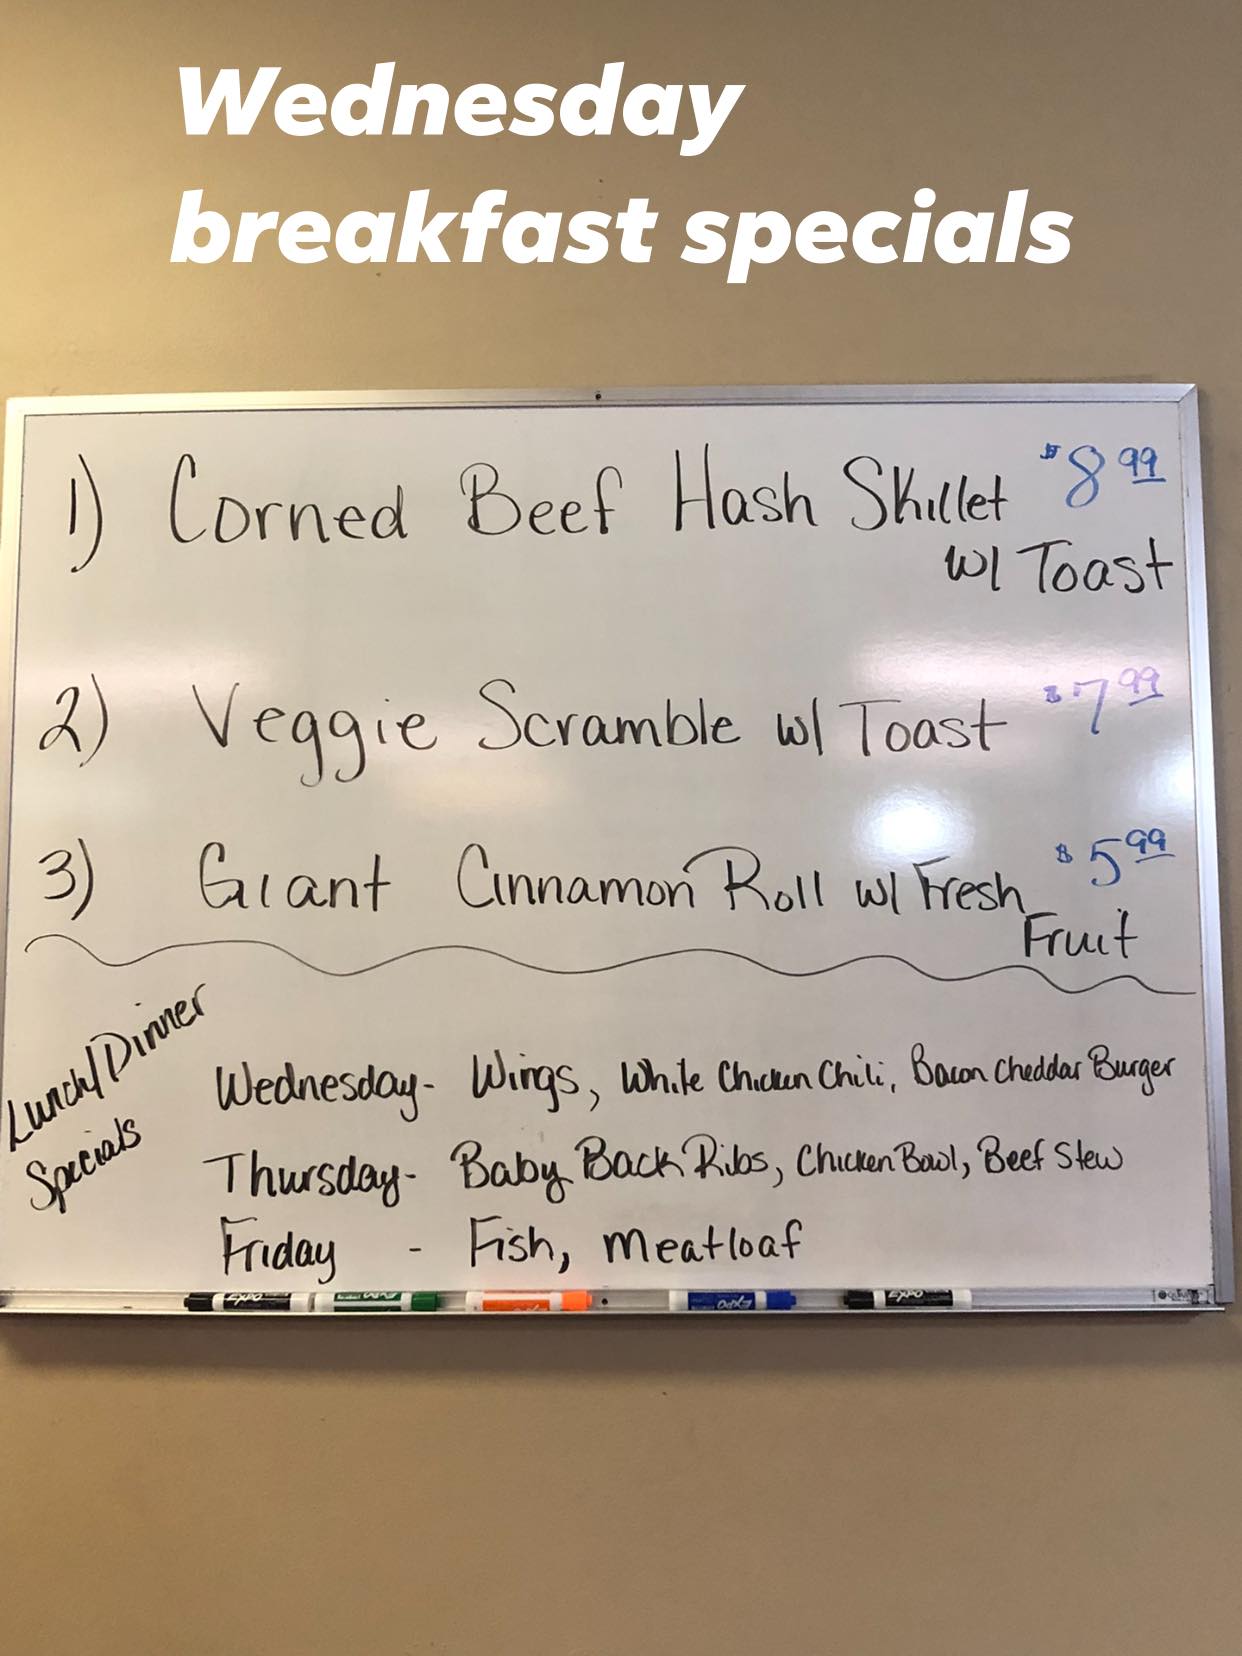 Wednesday
breakfast specials
1) Corned Beef Hash Skillet $8.99
w/ Toast
2) Veggie Scramble w/ Toast $7.99
3) Giant Cinnamon Roll w/ Fresh $5.99
Fruit
Lunch/Dinner
Specials
Wednesday- Wings, White Chicken Chili, Bacon Cheddar Burger
Thursday- Baby Back Ribs, Chicken Bowl, Beef Stew
Friday - Fish, Meatloaf
EXPO
EXPO
EXPO